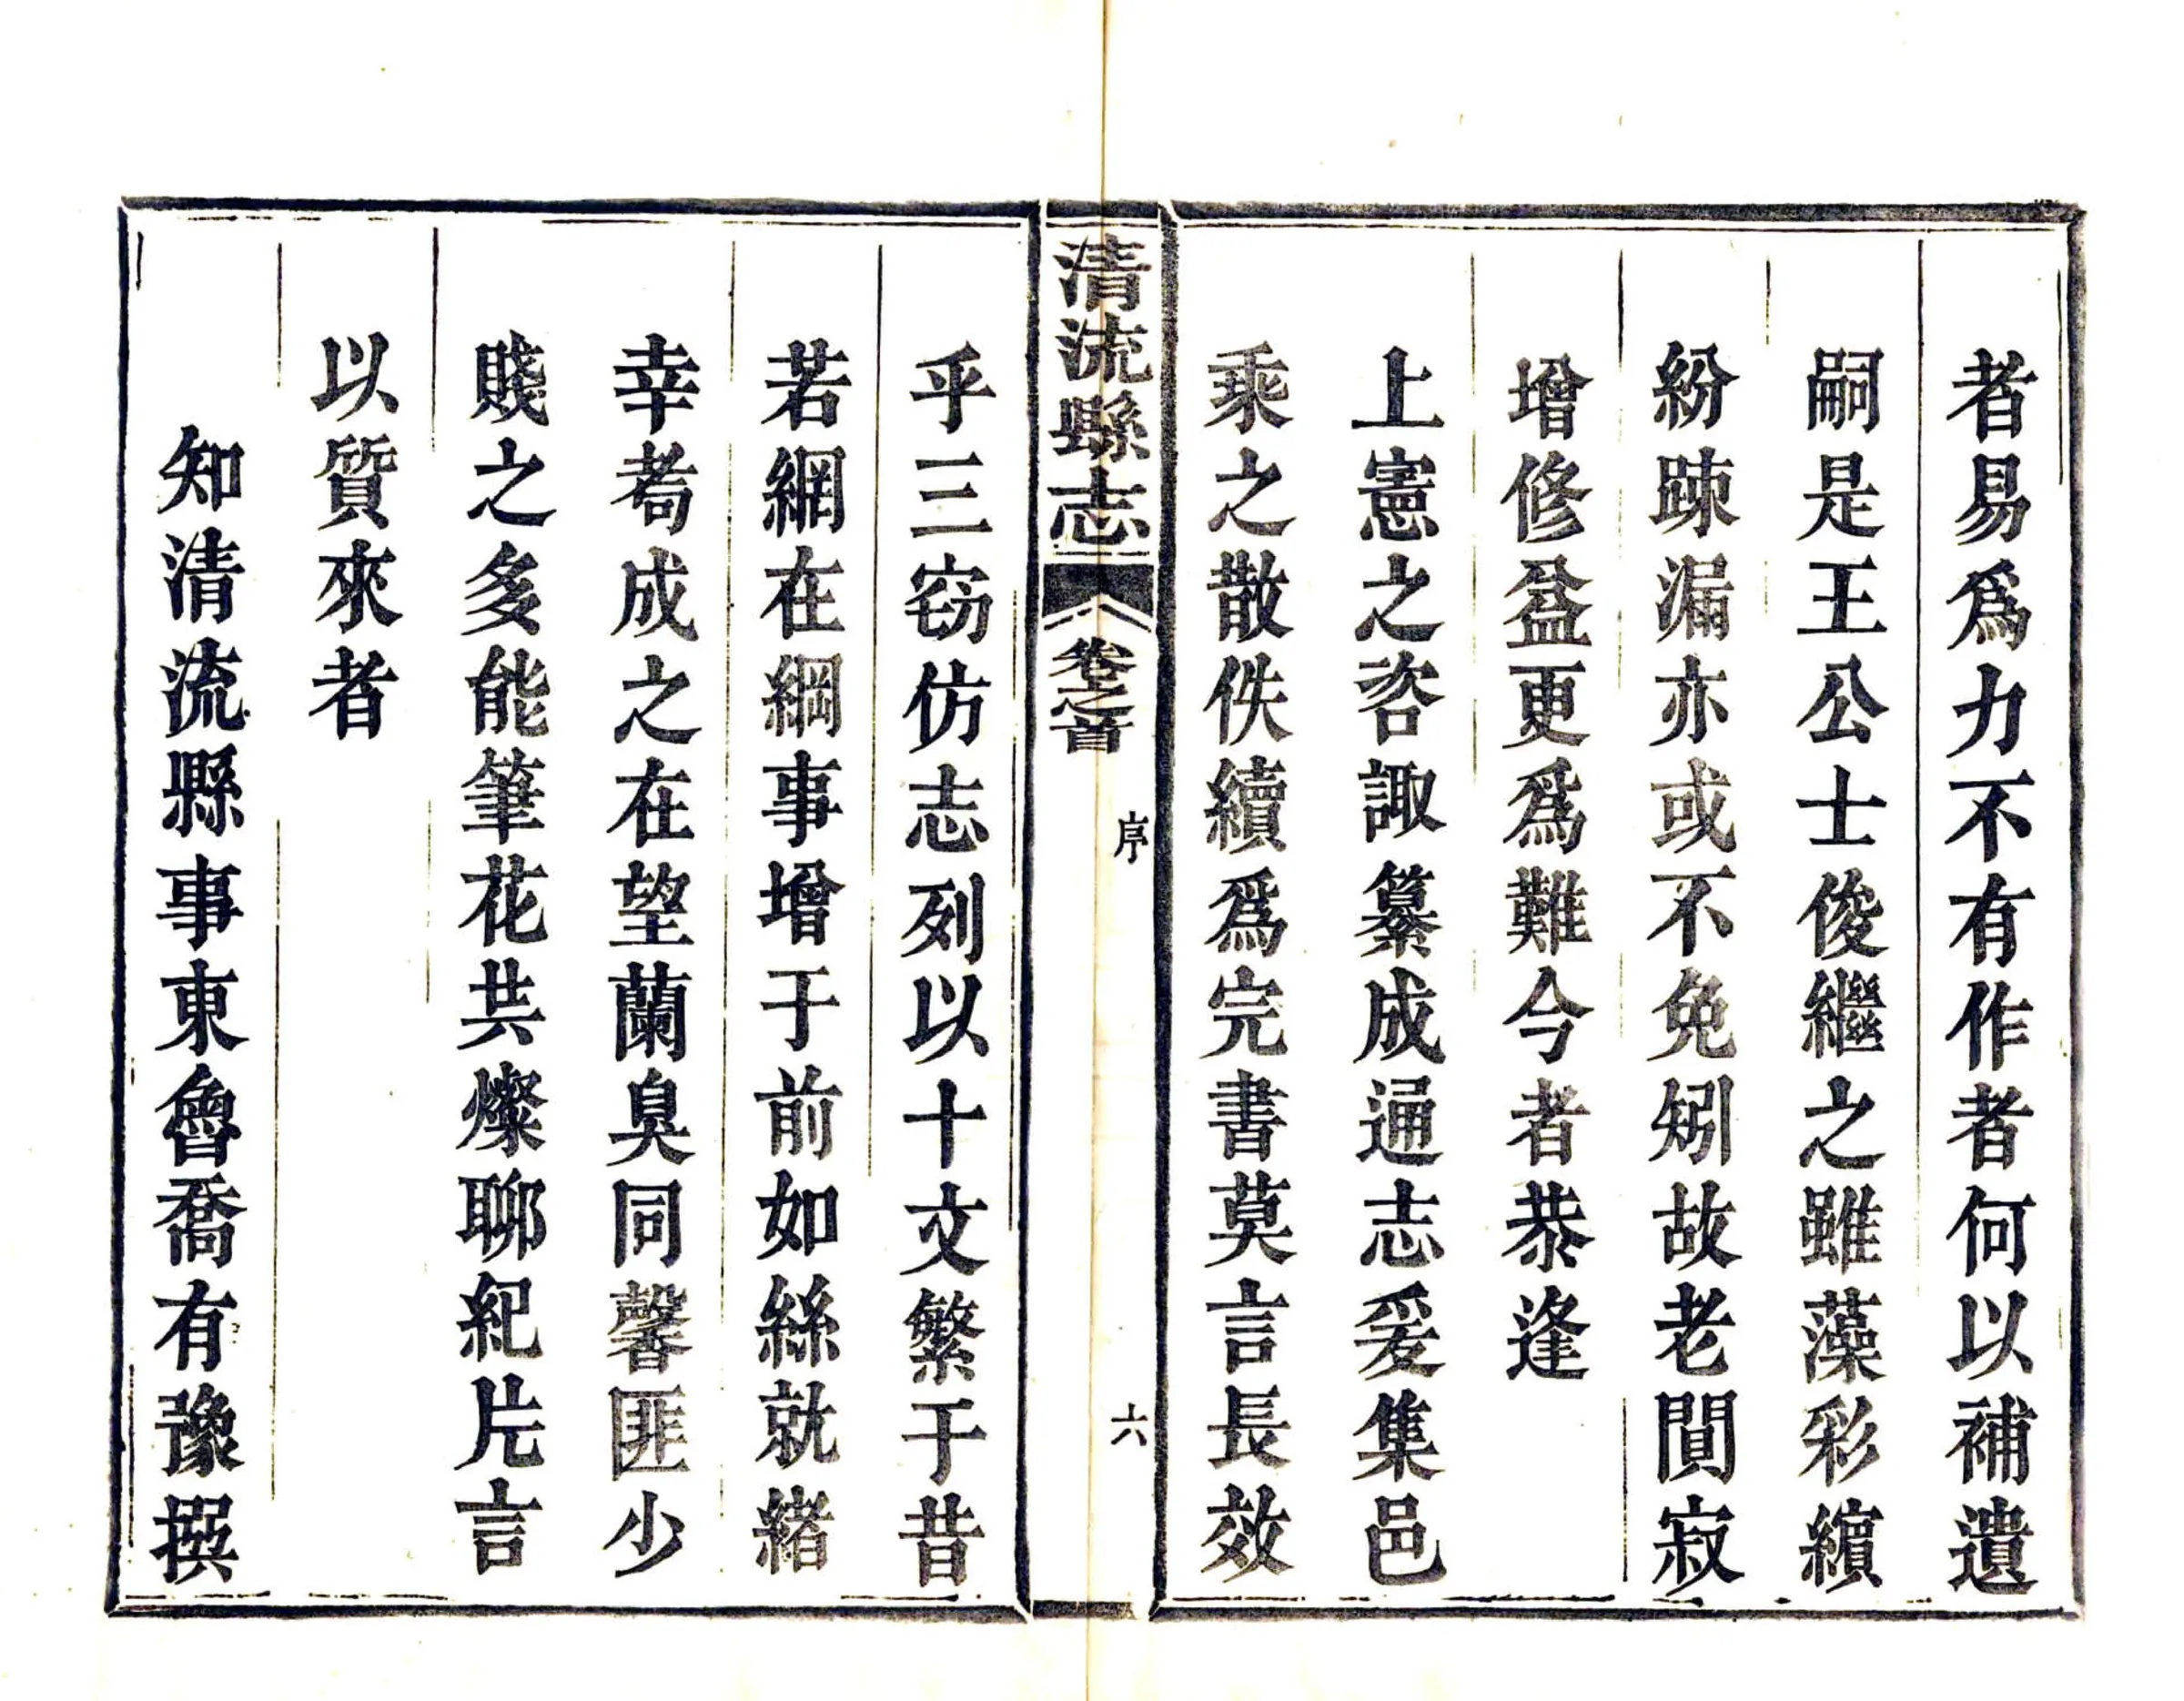 者易爲力不有作者何以補遺
嗣是王公士俊繼之雖藻彩繽
紛踈漏亦或不免矧故老閴寂
增修益更爲難今者恭逢
上憲之咨諏纂成通志爰集邑
乘之散佚續爲完書莫言長效
清流縣志
卷之首
序
六
乎三窃仿志列以十文繁于昔
若網在綱事增于前如絲就緒
幸耇成之在望蘭臭同馨匪少
賤之多能筆花共燦聊紀片言
以質來者
知清流縣事東魯喬有豫撰